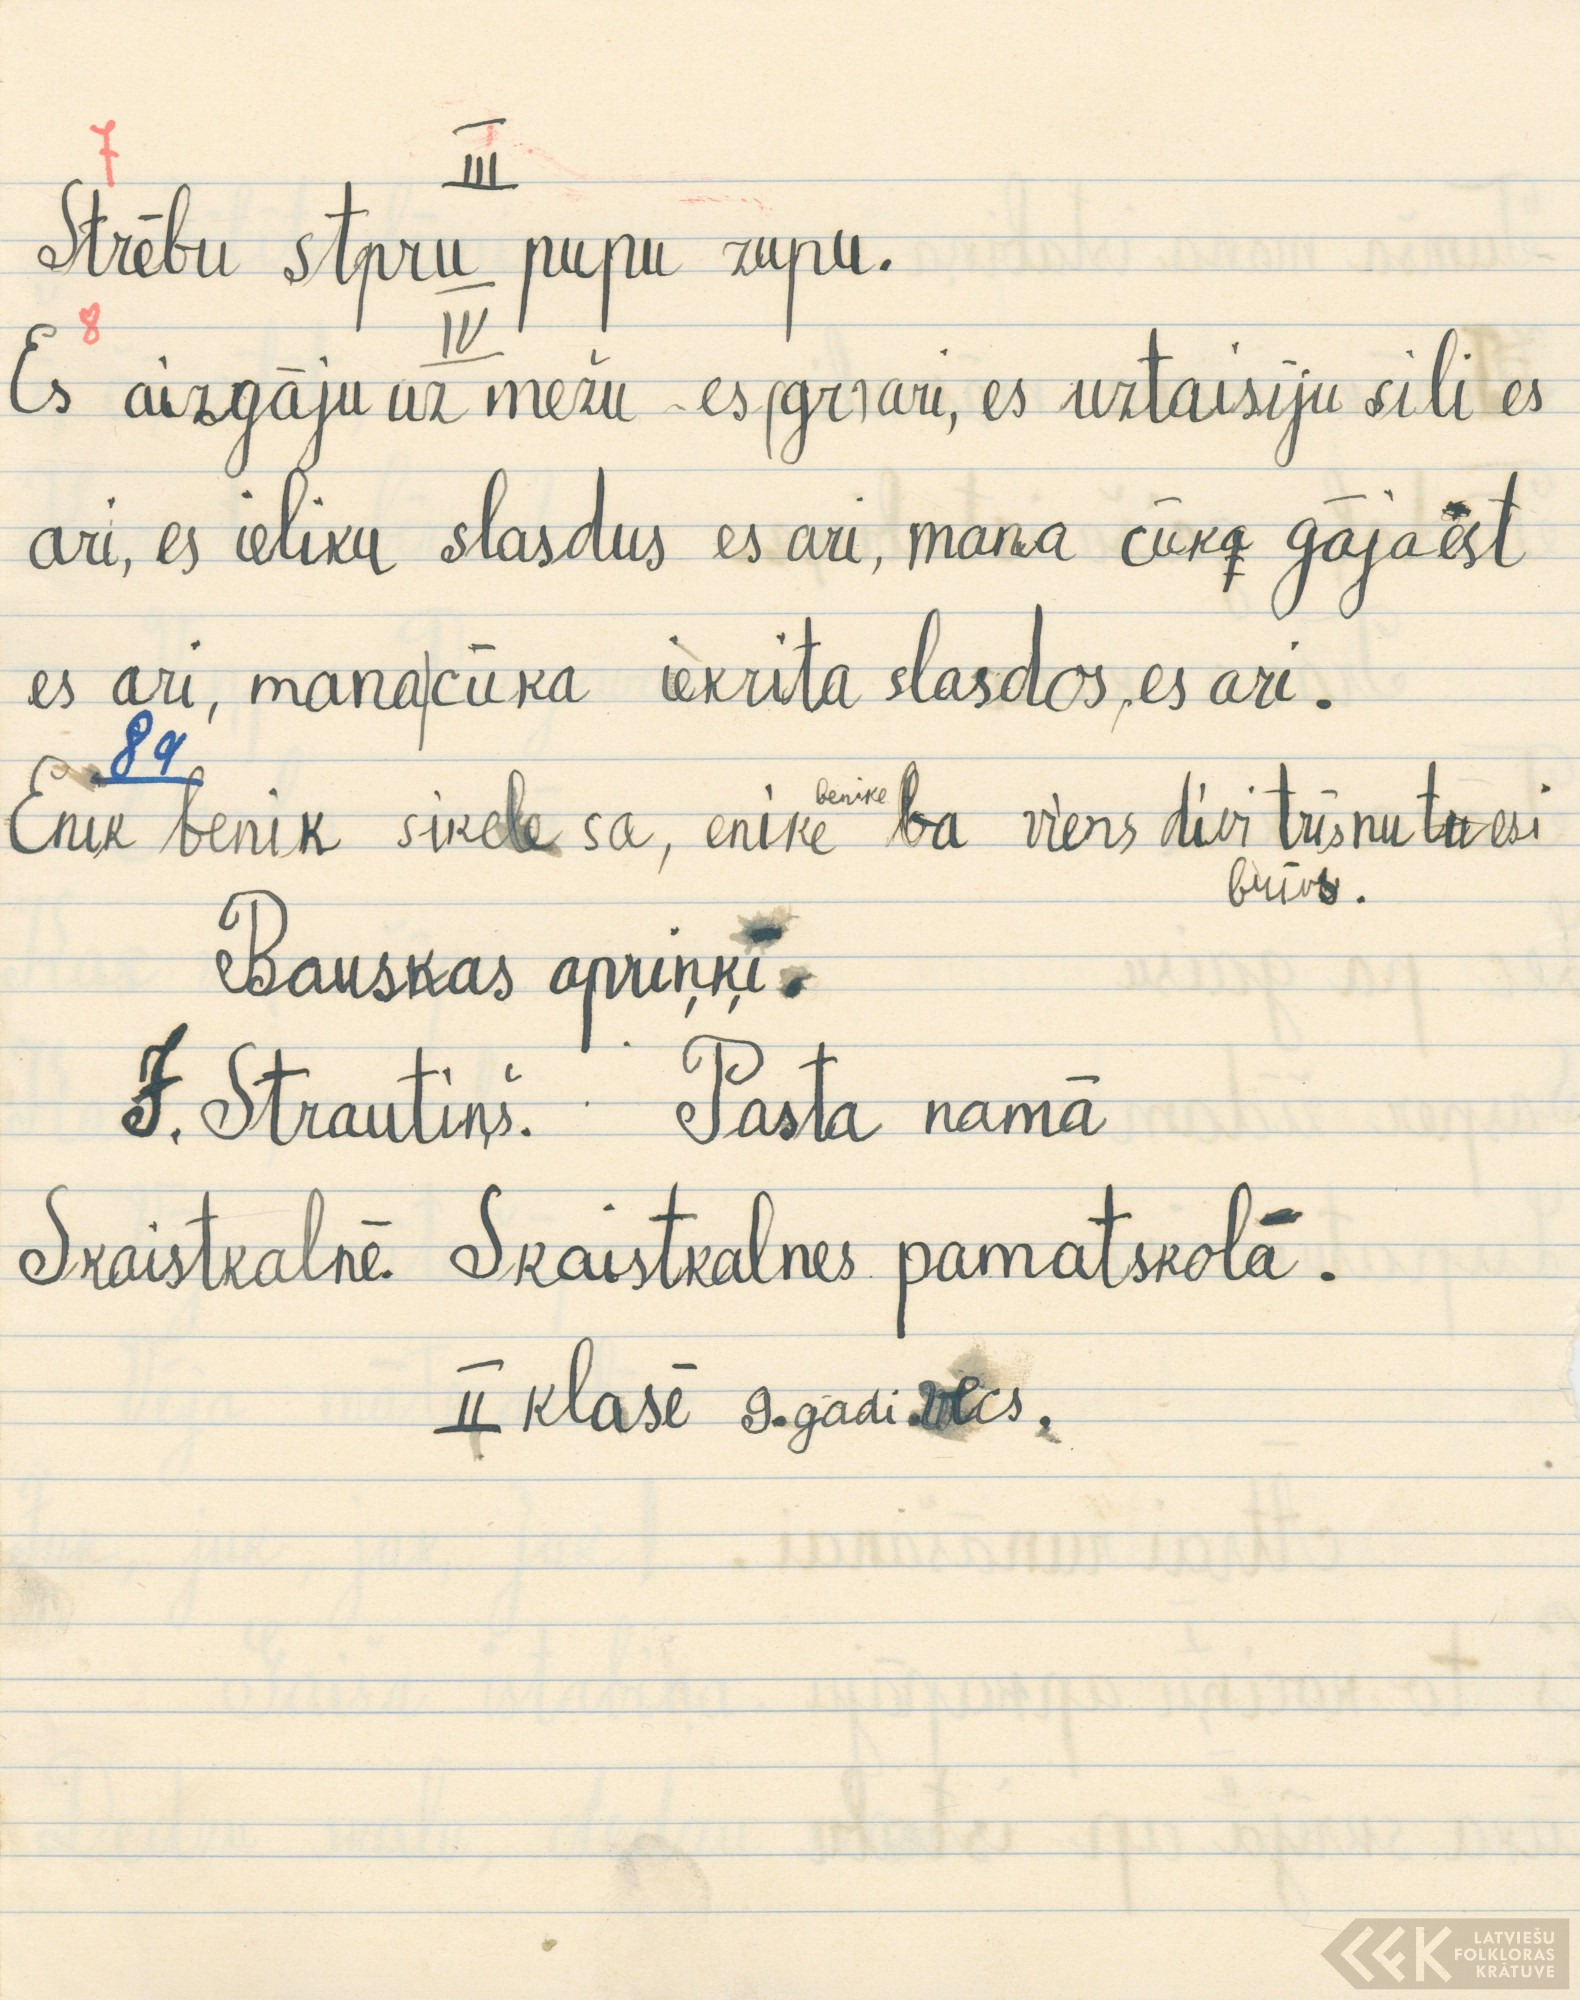 7
III
Strēbu stpru pupu zupu.
8
IV
Es aizgāju uz mežu es (gr) ari, es uztaisīju sili es
ari, es ieliku slasdus es ari, mana cūka gāja ēst
es ari, mana cūka iekrita slasdos, es ari.
89
Enik benik sikele sa, enike benike ba viens divi trīs nu tu esi
brīvs.
Bauskas apriņķī.
J. Strautiņš. Pasta namā
Skaistkalnē. Skaistkalnes pamatskolā.
II klasē 9. gadi vecs.
LATVIEŠU
FOLKLORAS
KRĀTUVE